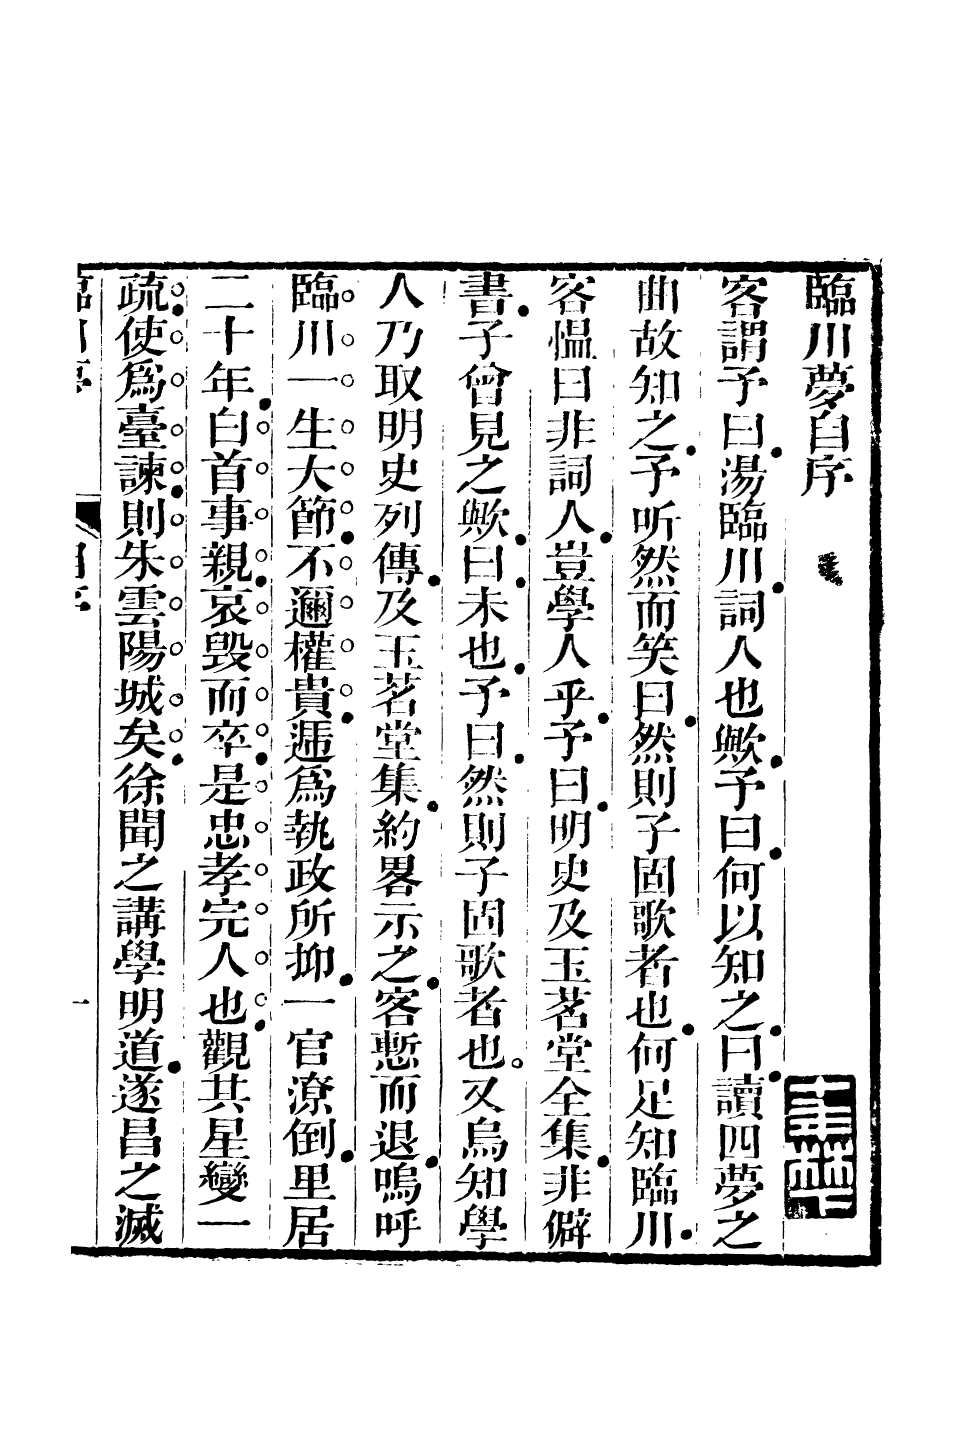 臨川夢自序
客謂予曰湯臨川詞人也歟予曰何以知之曰讀四夢之
曲故知之予听然而笑曰然則子固歌者也何足知臨川
客慍曰非詞人豈學人乎予曰明史及玉茗堂全集非僻
書子曾見之歟曰未也予曰然則子固歌者也又烏知學
人乃取明史列傳及玉茗堂集約畧示之客慙而退嗚呼
臨川一生大節不邇權貴遞爲執政所抑一官潦倒里居
二十年白首事親哀毀而卒是忠孝完人也觀其星變一
疏使爲臺諫則朱雲陽城矣徐聞之講學明道遂昌之滅
臨川夢
自序
一